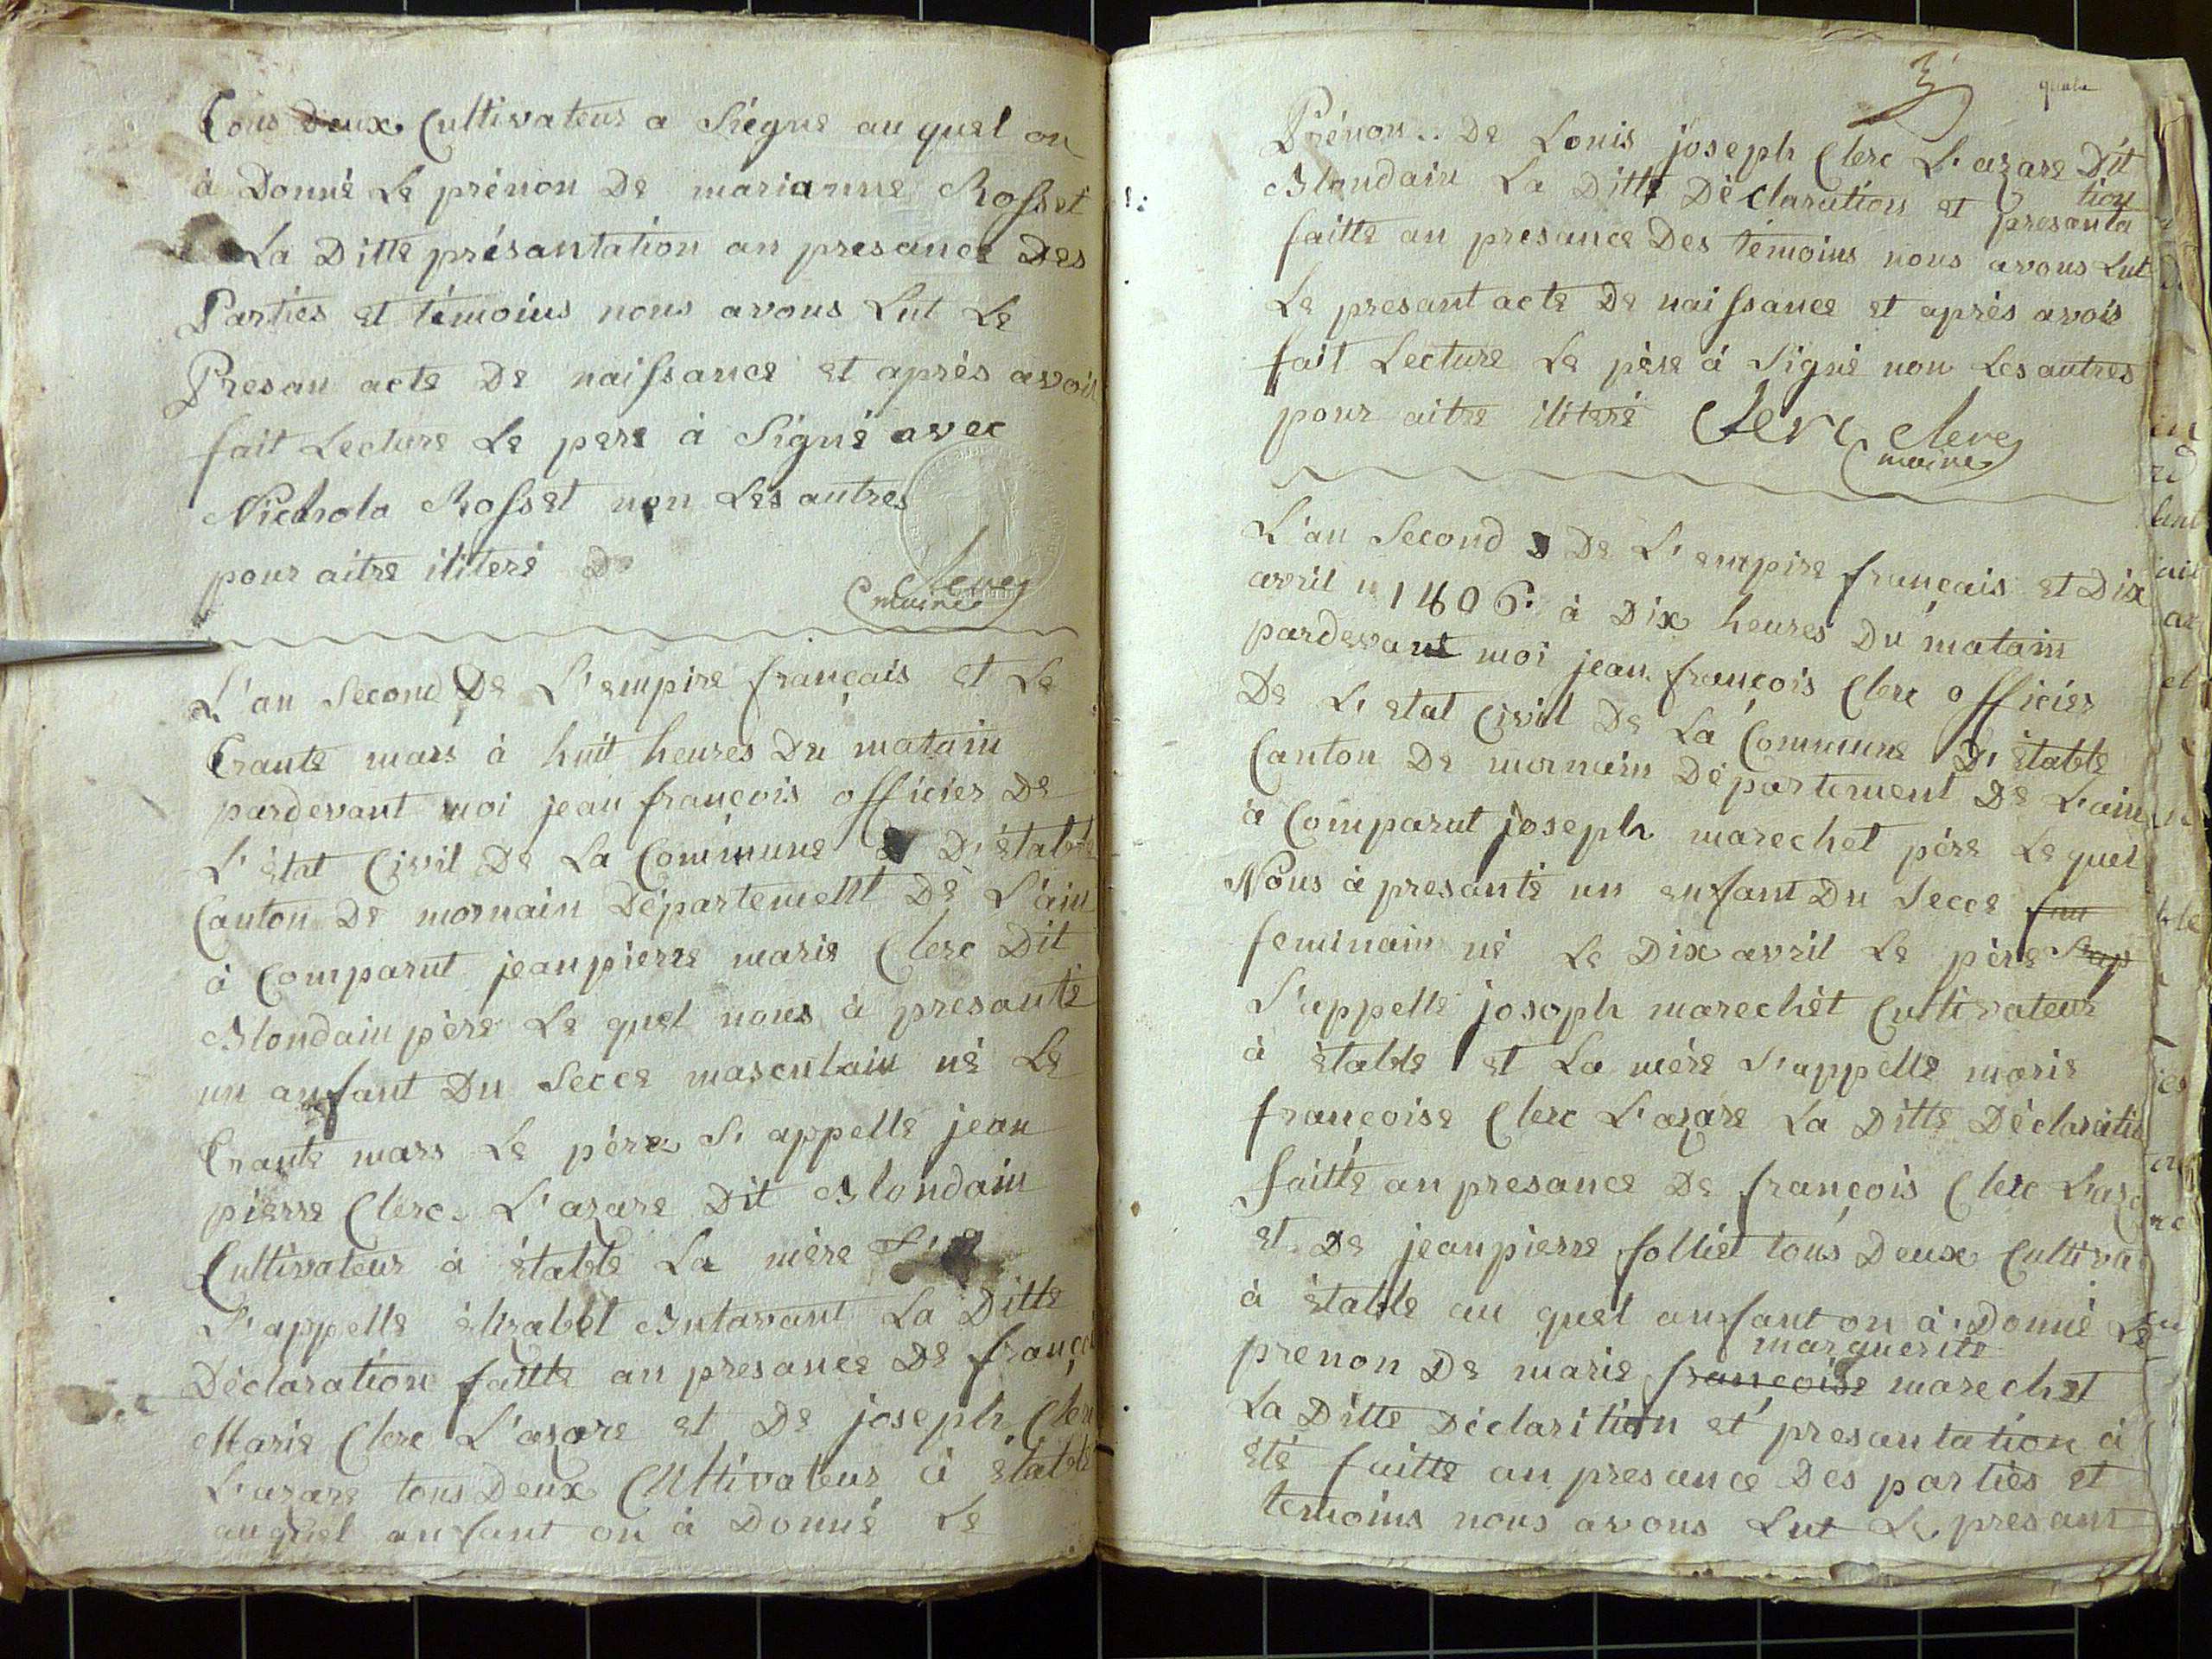 tous Deux Cultivateur a Siegne au quel on
à Donné Le prénon De marianne Rosset
La Ditte présantation an presance Des
Parties et témoins nous avons Lut Le
Presan acte De naissance et après avoir
fait Lecture Le pere à Signé avec
Nichola Rosset non Les autres
pour aitre ilitere
Clerc
maire
L'an Second De L'empire français et Le
trante mars à huit heures Du matain
pardevant moi jean françois officier De
L'état Civil De La Commune D'étable
Canton De mornain Département De L'ain
à Comparut jeanpierre marie Clerc Dit
Blondain père Le quel nous à presanté
un anfant Du Secce masculain né Le
trante mars Le père S'appelle jean
pierre Clerc L'azare Dit Blondain
Cultivateur à étable La mère
S'appelle élizabet Butavant La Ditte
Déclaration faitte an presance De françoi
Marie Clerc L'azare et De joseph Clerc
L'azare tous Deux Cultivateur à étable
auquel anfant on à Donné Le
3
Prénon .. De Louis joseph Clerc L'azare Dit
Blondain La Ditte Déclaration et presanta
tion
faitte an presance Des témoins nous avons Lut
Le presant acte De naissance et après avoir
fait Lecture Le père à Signé non Les autres
pour aitre ilitere Clerc Clerc
maire
L'an Second De L'empire français et Dix
avril 1806 à Dix heures Du matain
pardevant moi jean françois Clerc officier
De L'etat Civil De La Commune D'étable
Canton De mornain Département De L'ain
à Comparut joseph marechet père Le quel
Nous à presanté un enfant Du Secce
feminain né Le Dix avril Le père
S'appelle joseph marechet Cultivateur
à étable et La mère S'appelle marie
françoise Clerc L'azare La Ditte Déclaratio
faitte an presance De françois Clerc L'aza
et De jeanpierre folliet tous Deux Cultiva
à étable au quel anfant on à Donné Le
marguerite
prenon De marie françoise marechet
La Ditte Déclarition et presantation à
été faitte an presance Des parties et
temoins nous avons Lut Le presant